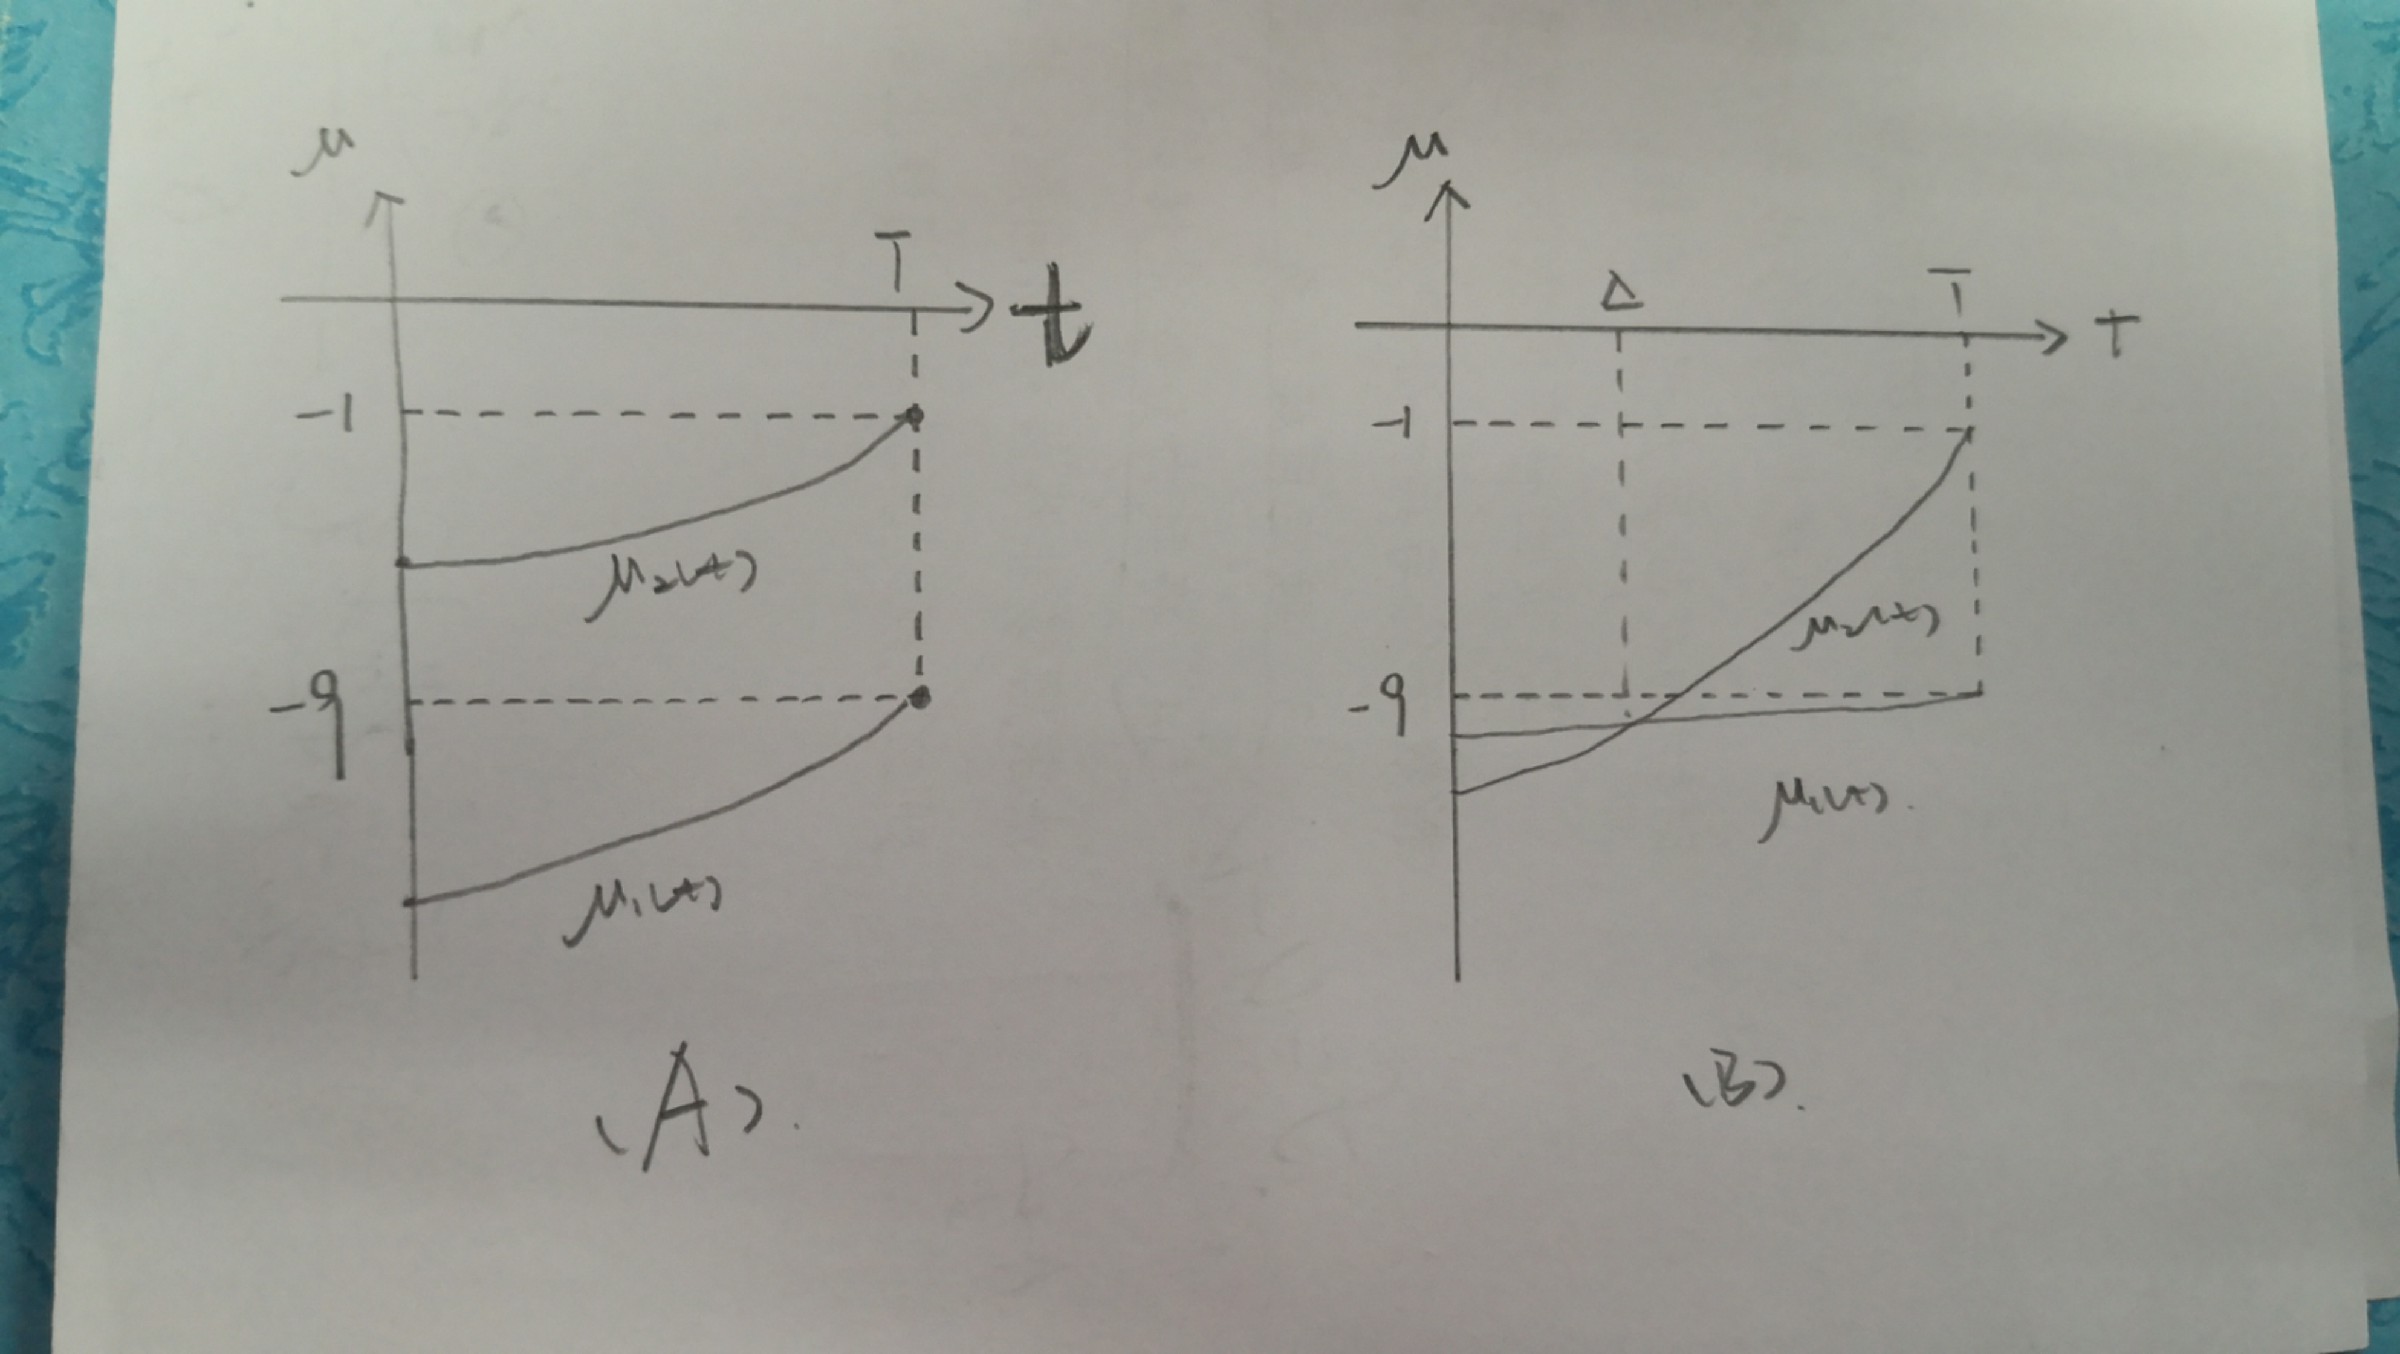 μ
T
t
-1
μ₂(t)
-9
μ₁(t)
(A).
μ
Δ
T
t
-1
μ₂(t)
-9
μ₁(t).
(B).